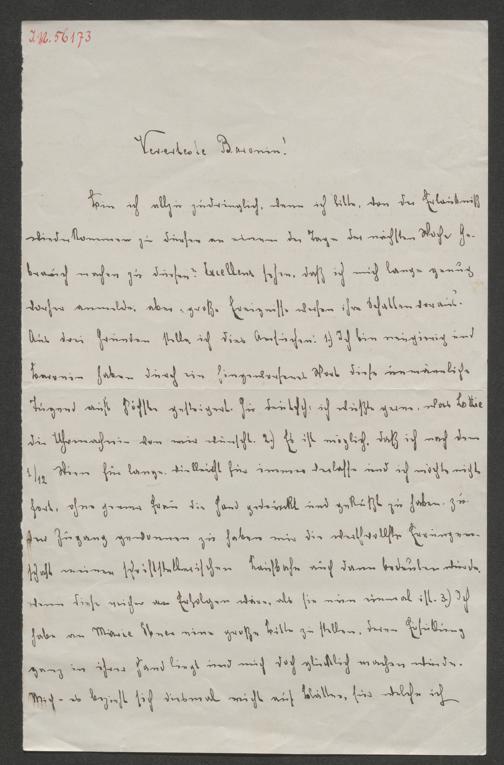 I.N. 56173
Verehrteste Baronin!
Bin ich allzu zudringlich, wenn ich bitte, von der Erlaubniß
wiederkommen zu dürfen an einem der Tage der nächsten Woche Ge-
brauch machen zu dürfen? Excellenz sehen, daß ich mich lange genug
vorher anmelde, aber: große Ereignisse werfen ihre Schatten voraus.
Aus drei Gründen stelle ich dies Ansuchen: 1) Ich bin neugierig und
Baronin haben durch ein hingeworfenes Wort diese unmännliche
Tugend aufs Höchste gesteigert. Zu deutsch: ich wüßte gerne, was Lotti
die Uhrmacherin von mir wünscht. 2) Es ist möglich, daß ich nach dem
1/12 Wien für lange, vielleicht für immer verlasse und ich möchte nicht
fort, ohne jener Frau die Hand gedrückt und geküßt zu haben, zu
der Zugang gewonnen zu haben mir die werthvollste Errungen-
schaft meiner schriftstellerischen Laufbahn auch dann bedeuten würde,
wenn diese reicher an Erfolgen wäre, als sie nun einmal ist. 3) Ich
habe an Marie Ebner eine große Bitte zu stellen, deren Erfüllung
ganz in ihrer Hand liegt und mich doch glücklich machen würde.
Mich – es bezieht sich diesmal nicht auf Blätter, für welche ich